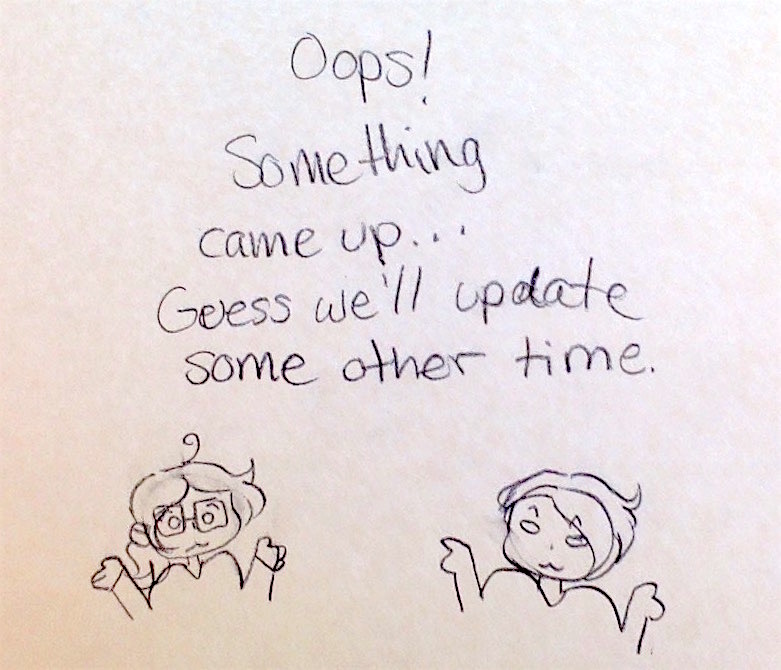 Oops!
Something
came up...
Guess we'll update
some other time.